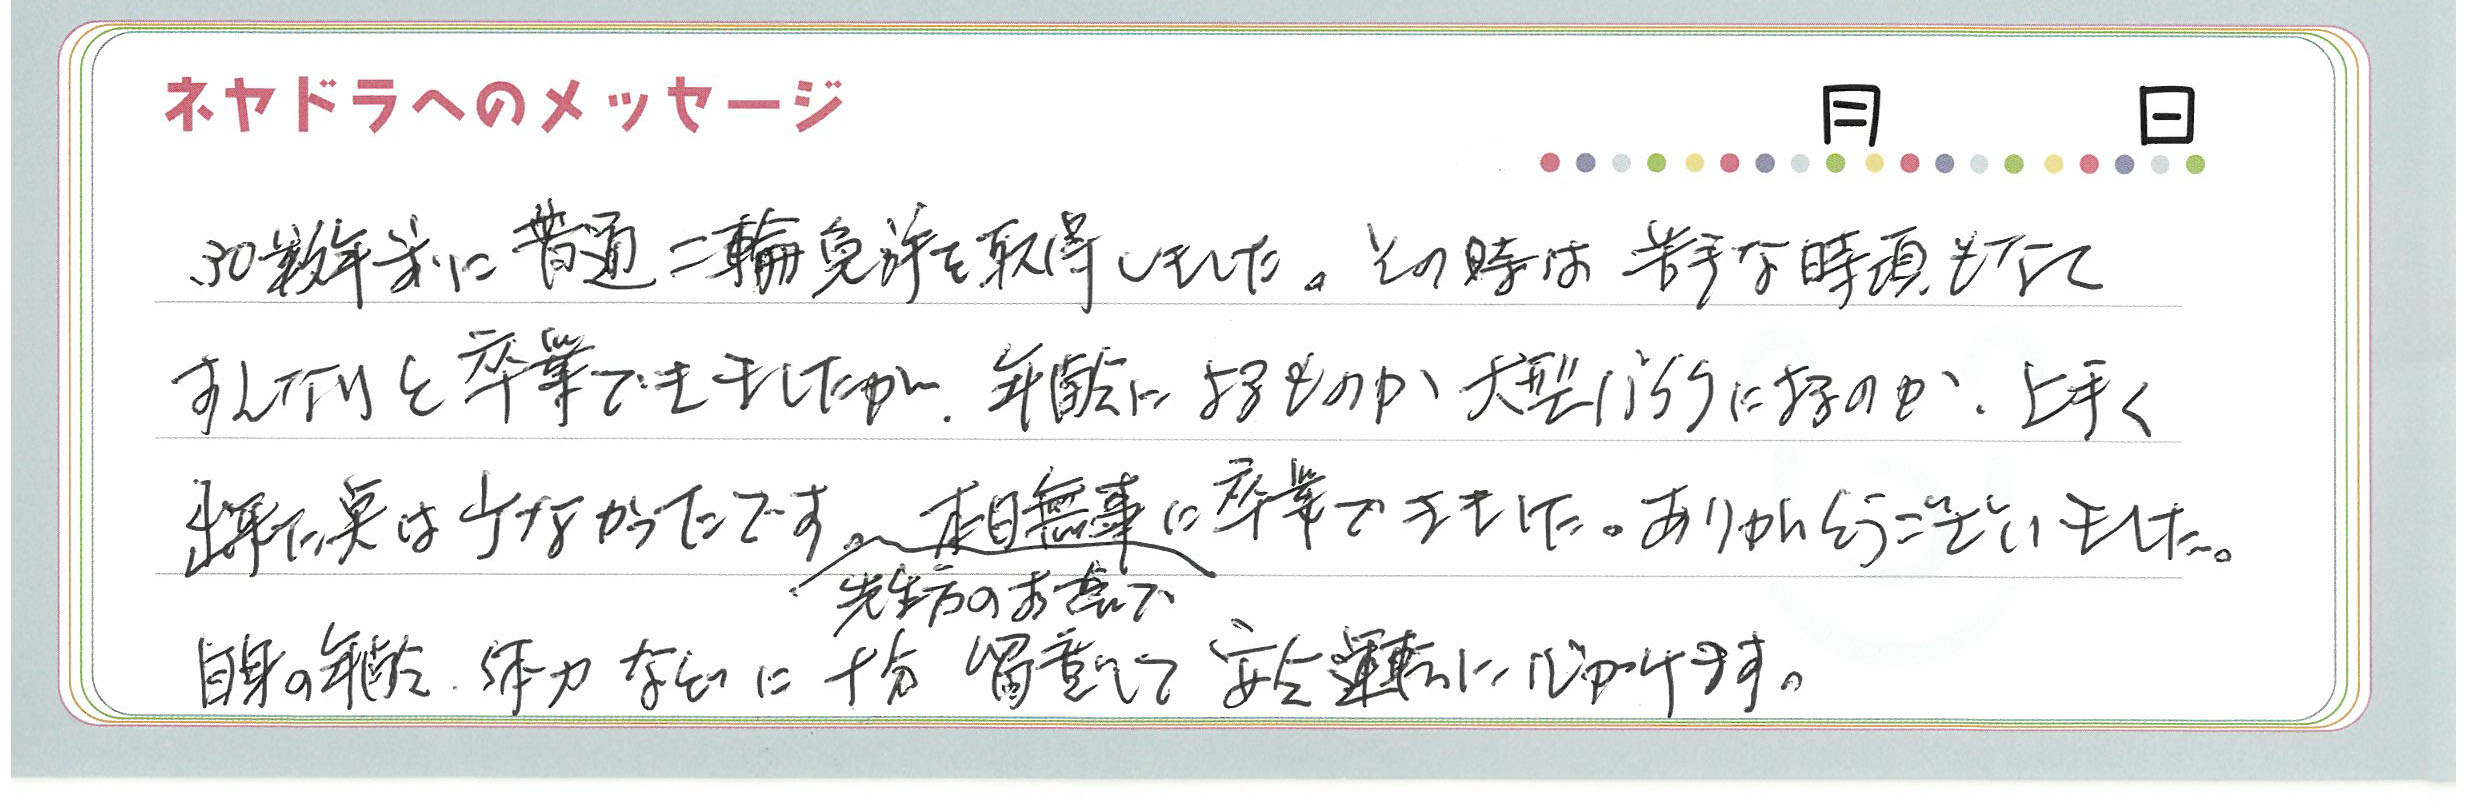 ネヤドラへのメッセージ
月 日
30数年前に普通二輪免許を取得しました。その時は苦手な時項もなく
すんなりと卒業できましたが、年齢によるものか大型バイクによるのか、上手く
出来た点は少なかったです。本日無事に卒業できました。ありがとうございました。
先生方のお蔭で
自身の年齢、体力などに十分留意して安全運転に心がけます。